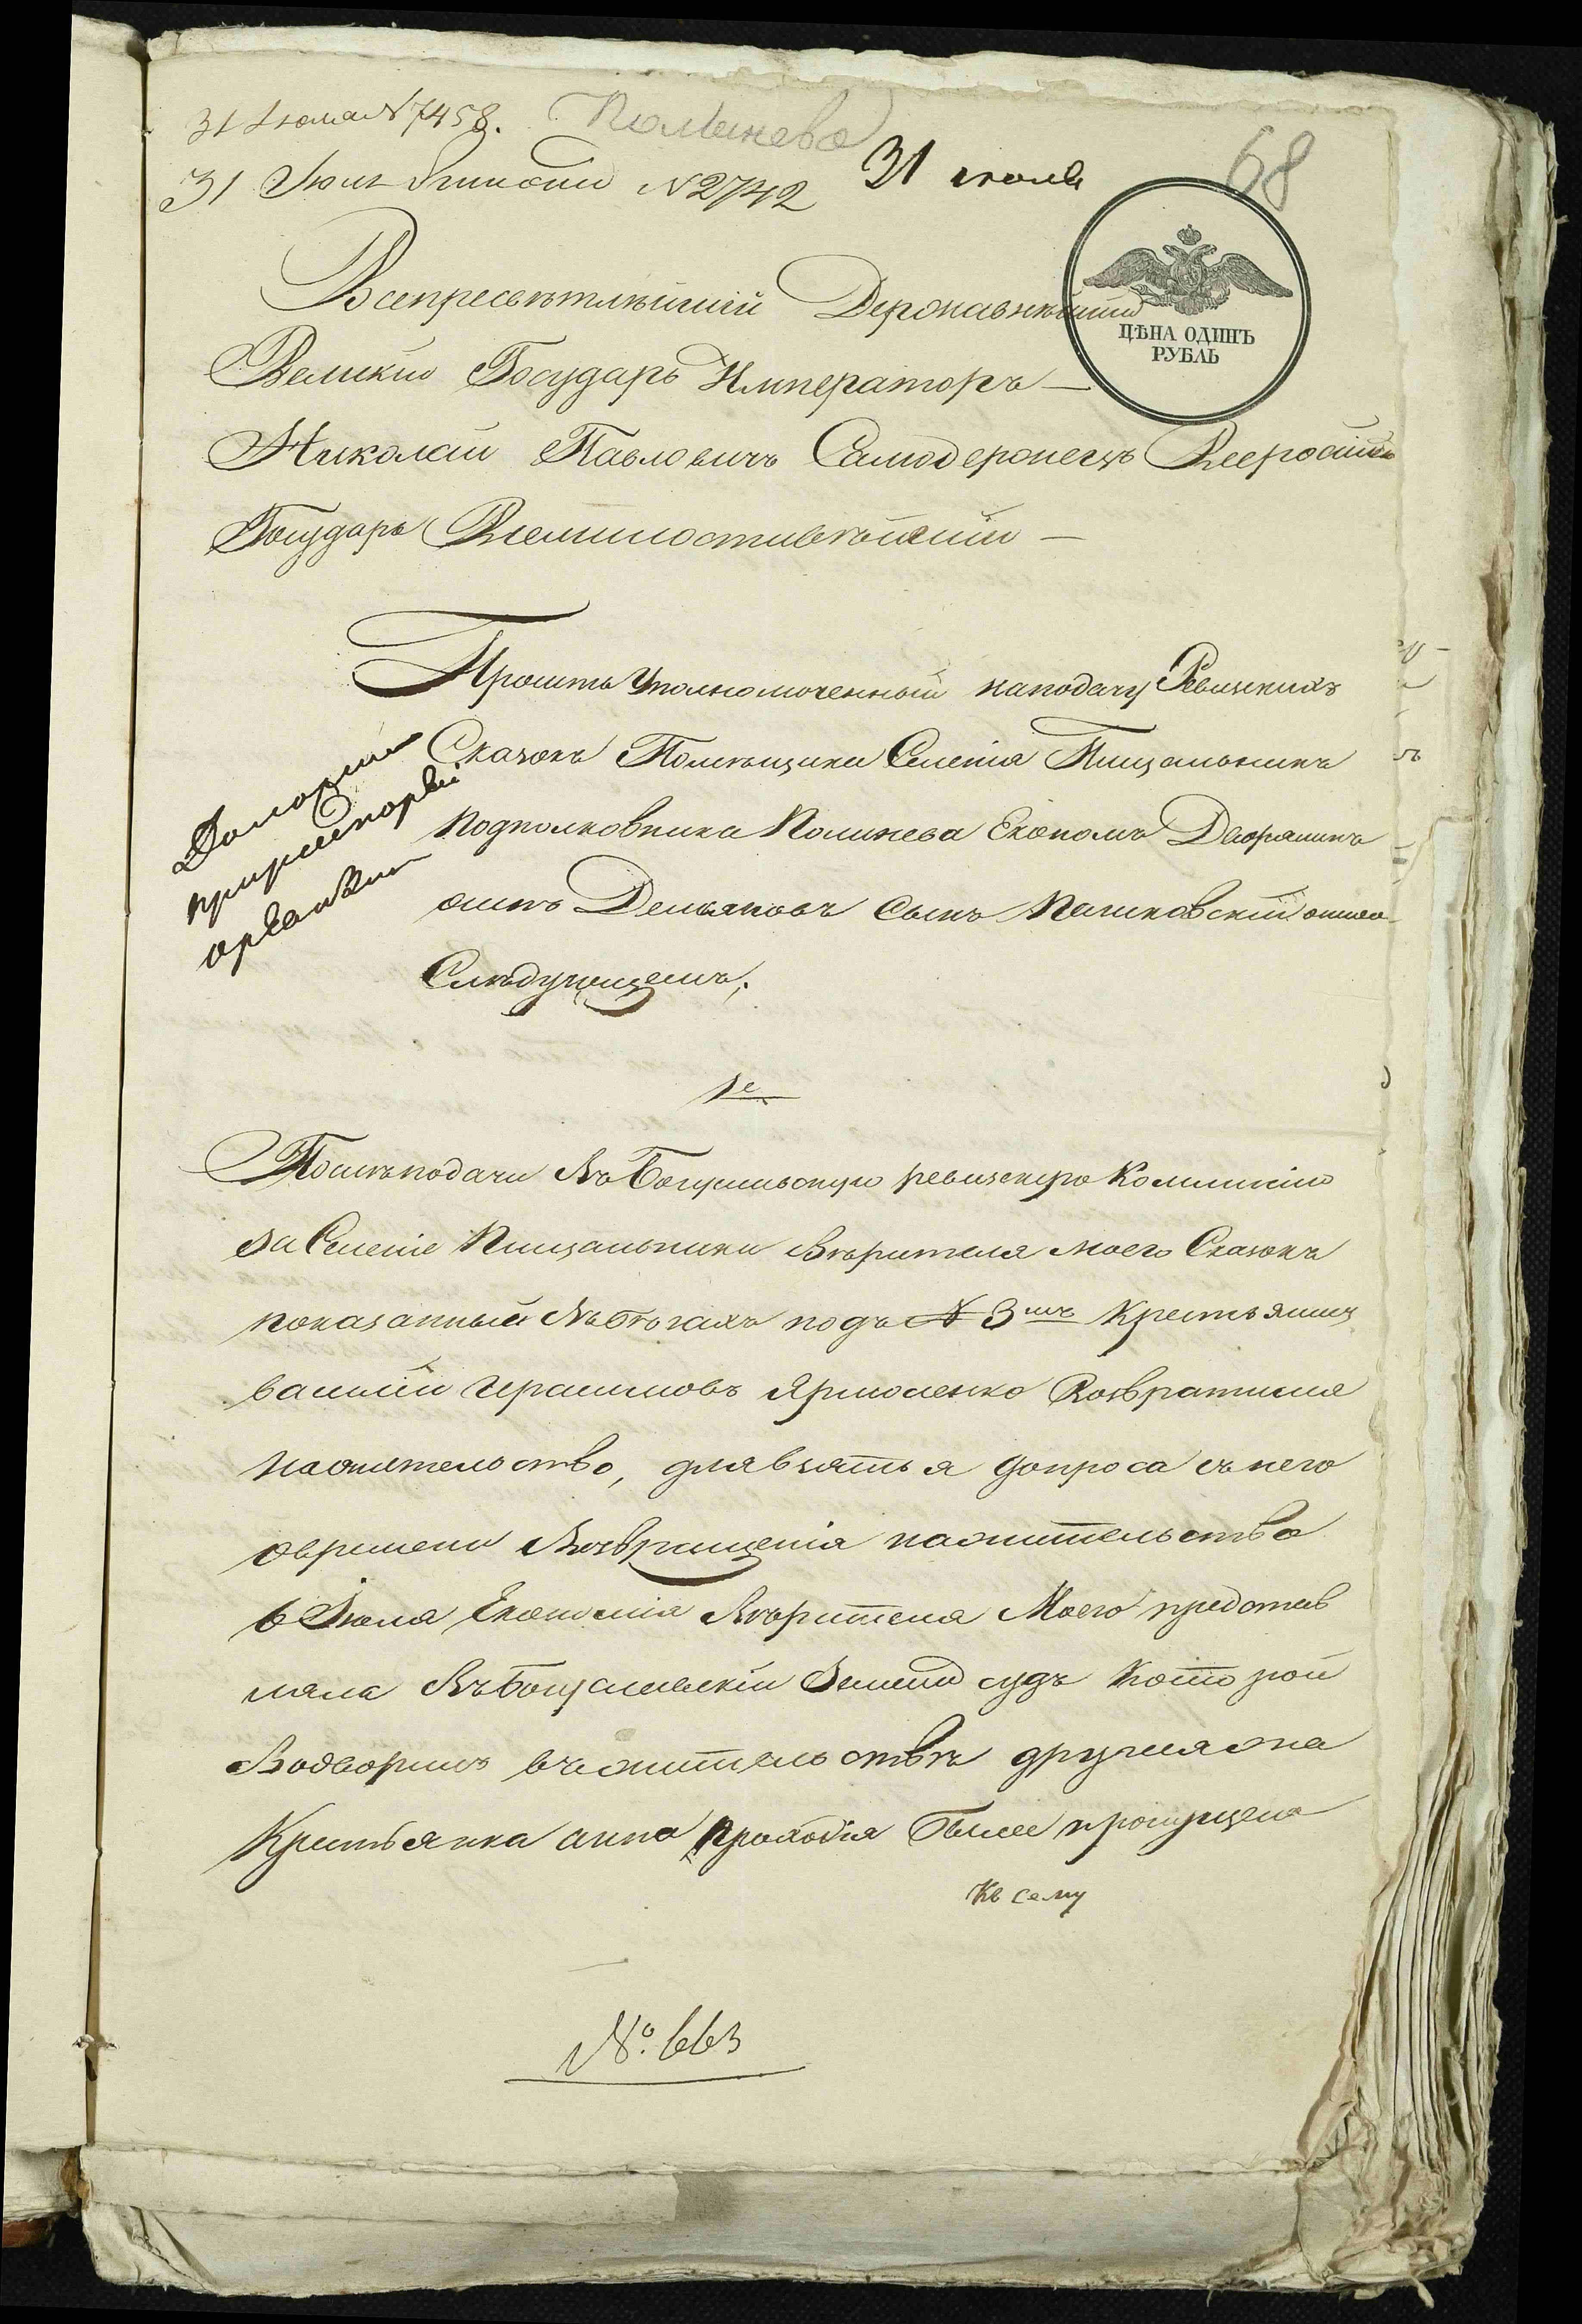 31 Июля №7458. Полынева
31 Июля №2742 31 июля 68
ЦѢНА ОДИНЪ
РУБЛЬ
Всепресвѣтлѣйшій Державнѣйшій
Великій Государь Императоръ —
Николай Павловичъ Самодержецъ Всероссійскій
Государь Всемилостивѣйшій —
Проситъ Уполномоченный наподачу Ревизскихъ
Сказокъ Помѣщика Селенія Пищальникъ
Подполковника Полынева Економъ Дворянинъ
Демьяновъ Сынъ
Слѣдующемъ;
1е
Послѣподачи въБогуславскую ревизскую Коммисію
за Селеніе Пищальники Вѣрителя моего Сказокъ
показанный въбѣгахъ подъ № 3мъ Крестьянинъ
василій Ярмоленко Возвратился
нажительство, длявзятья допроса снего
овремени Возвращенія нажительство
6 Июля Економія Вѣрителя Моего представ
ляла ВъБогуславскій Земскій судъ Которой
Водворилъ въжительствѣ другая
Крестьянка анна пропущена
Къ сему
№. 663